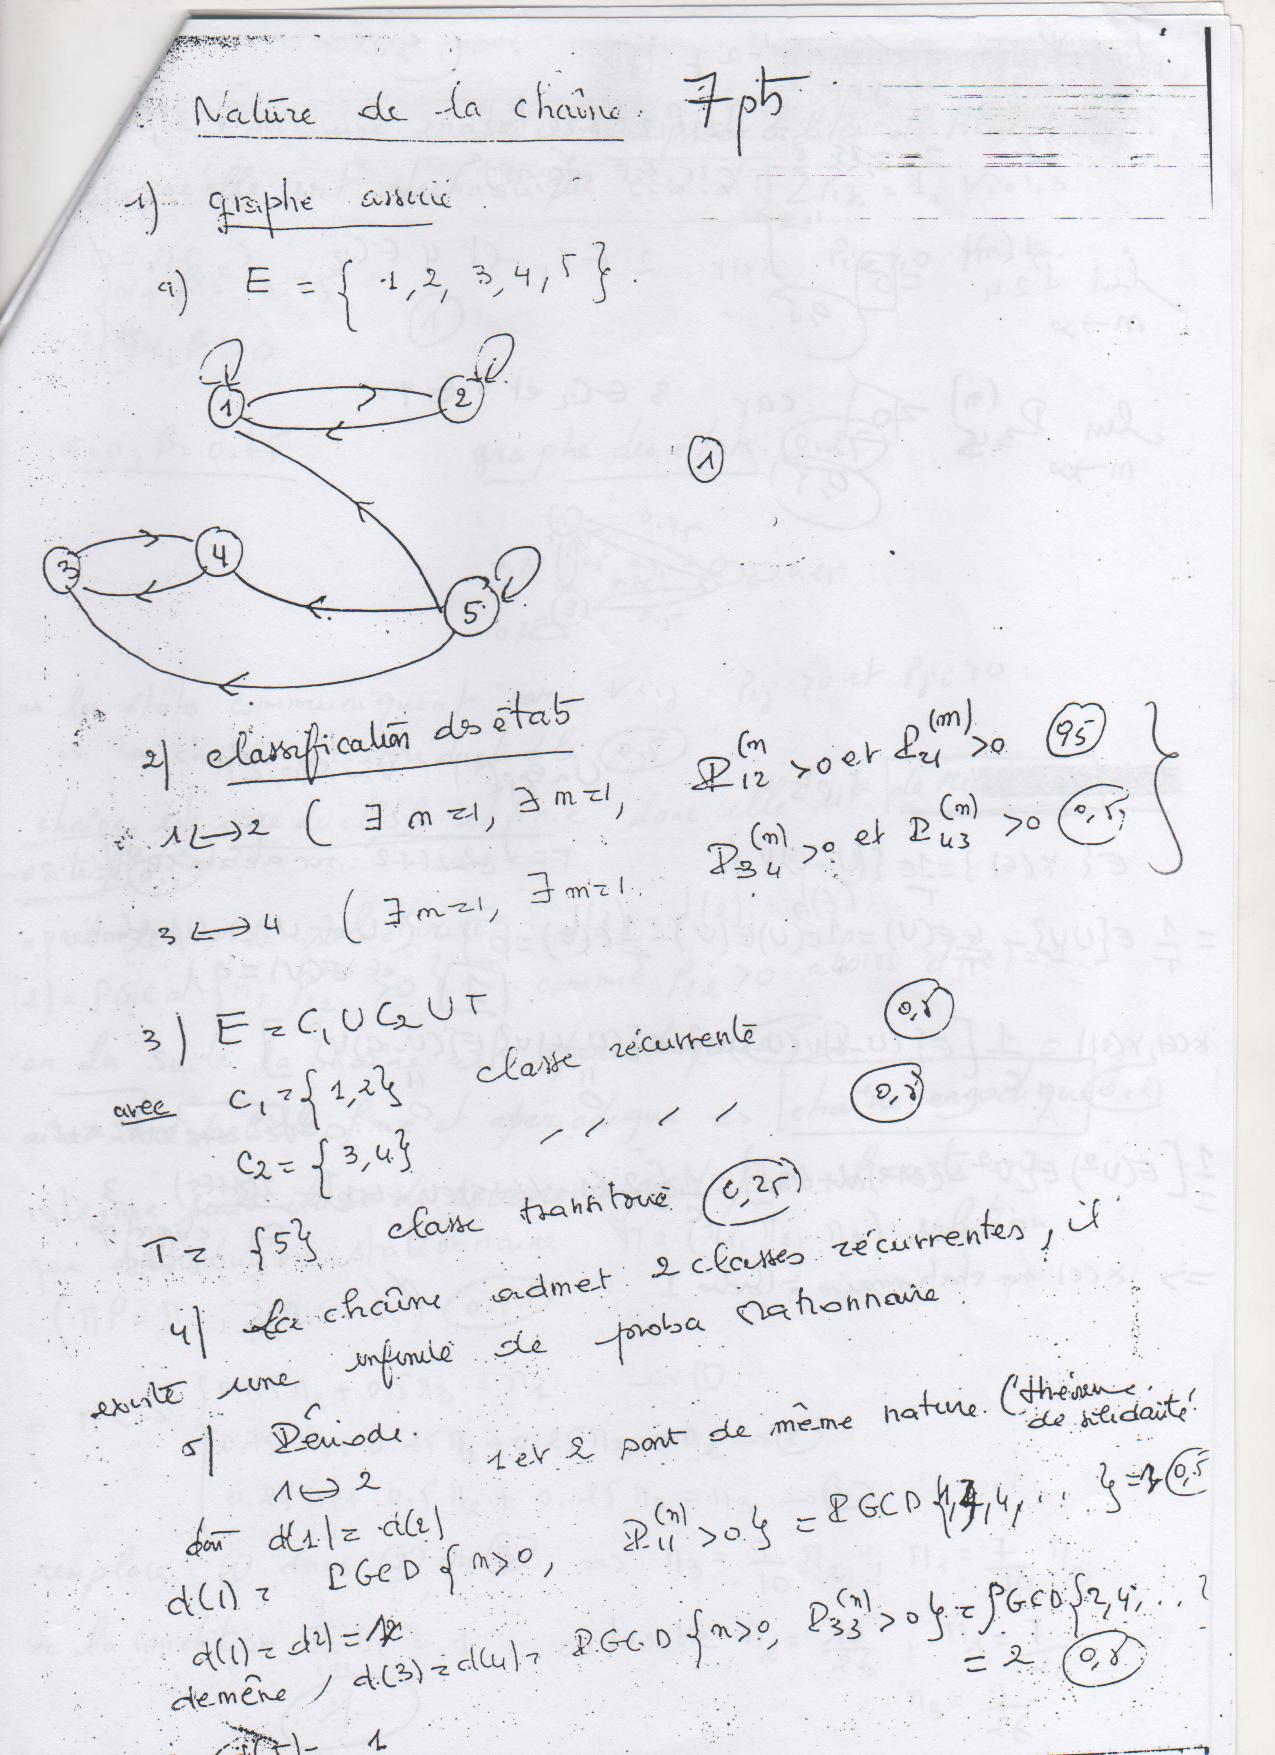 Nature de la chaîne. 7 pts
1) graphe associé.
a) E = { 1, 2, 3, 4, 5 }.
1 2
①
3 4
5
2) classification des états
1 ↔ 2 ( ∃ n=1, ∃ m=1, P12^(n) >0 et P21^(m) >0 0,5
3 ↔ 4 ( ∃ n=1, ∃ m=1. P34^(n) >0 et P43^(m) >0 0,5
3) E = C1 ∪ C2 ∪ T
avec C1 = {1,2} classe récurrente 0,5
C2 = {3,4} " " " " 0,5
T = {5} classe transitoire 0,25
4) La chaîne admet 2 classes récurrentes, il
existe une infinité de proba stationnaire.
5) Période.
1 ↔ 2 1 et 2 sont de même nature. (théorème de solidarité.
d'où d(1) = d(2)
d(1) = PGCD { n>0, P11^(n) >0 } = PGCD {1, 4, ... } = 1 0,5
d(1) = d(2) = 1
de même, d(3) = d(4) = PGCD { n>0, P33^(n) >0 } = PGCD {2, 4, ...
= 2 0,5